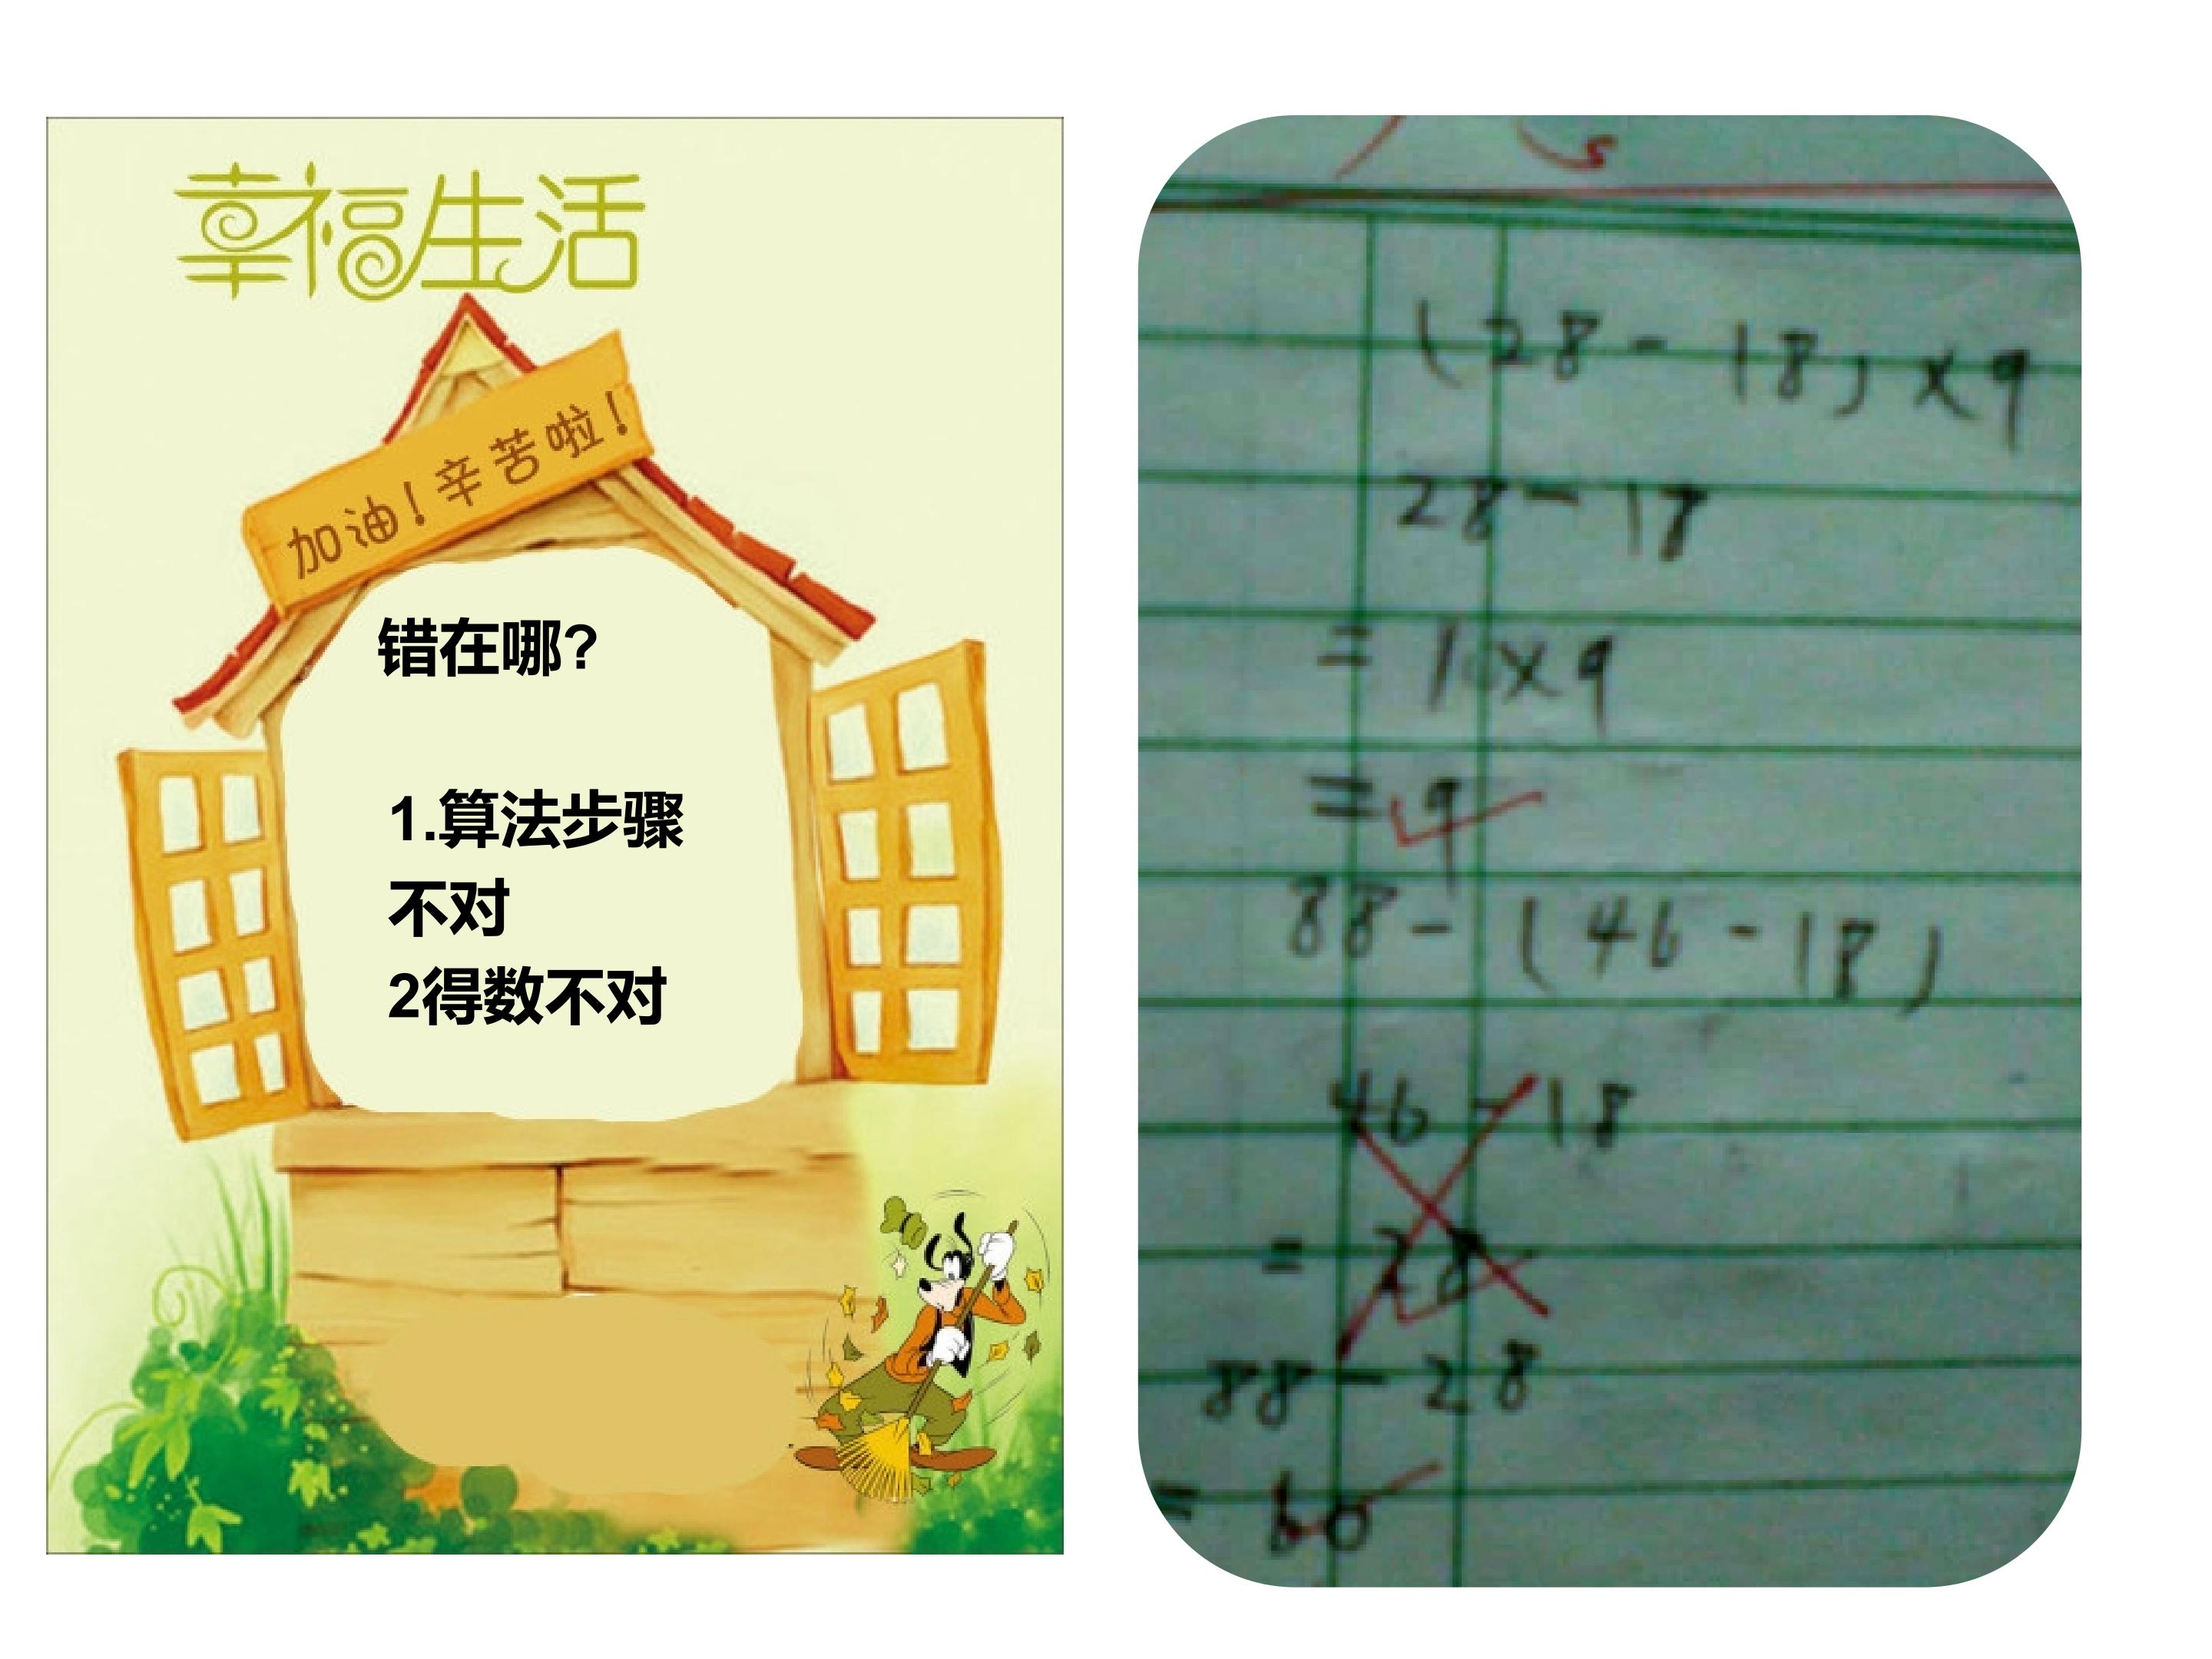 幸福生活
加油！辛苦啦！
错在哪?
1.算法步骤
不对
2得数不对
5
(28-18)×9
28-18
=10×9
=9
88-(46-18)
46-18
=28
88-28
=60